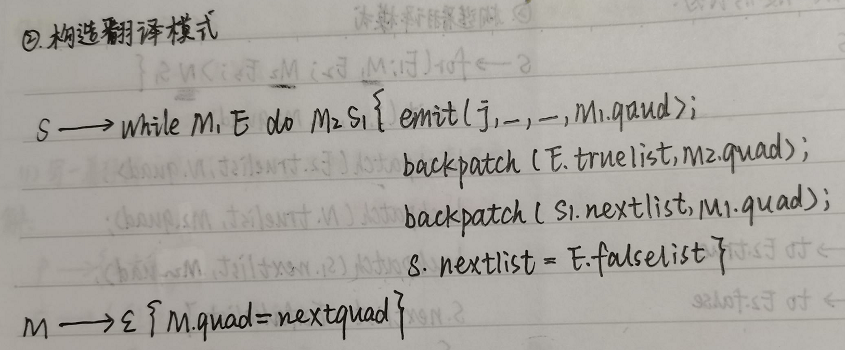 ②.构造翻译模式
S → while M1 E do M2 S1 { emit(j,–,–,M1.qaud);
backpatch(E.truelist,M2.quad);
backpatch(S1.nextlist,M1.quad);
S.nextlist = E.falselist }
M → ε { M.quad=nextquad }